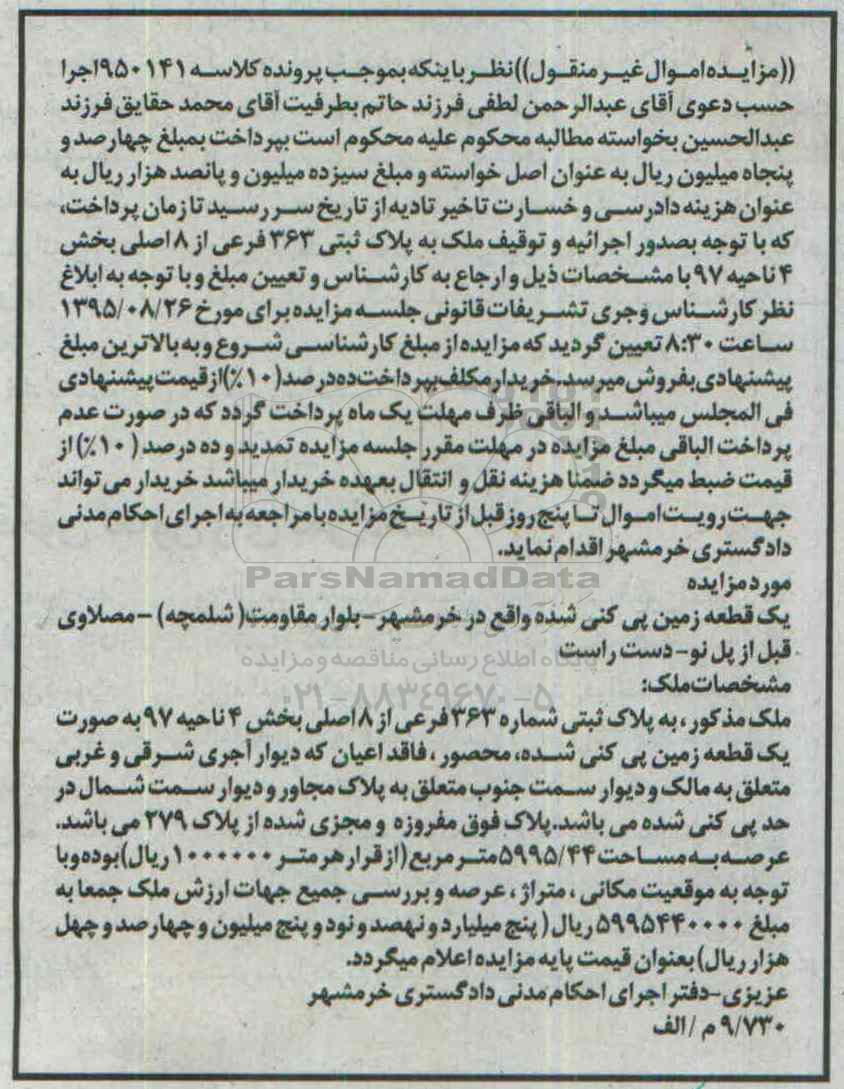 ((مزایده اموال غیر منقول)) نظر باینکه بموجب پرونده کلاسه ۹۵۰۱۴۱ اجرا
حسب دعوی آقای عبدالرحمن لطفی فرزند حاتم بطرفیت آقای محمد حقایق فرزند
عبدالحسین بخواسته مطالبه محکوم علیه محکوم است بپرداخت بمبلغ چهارصد و
پنجاه میلیون ریال به عنوان اصل خواسته و مبلغ سیزده میلیون و پانصد هزار ریال به
عنوان هزینه دادرسی و خسارت تاخیر تادیه از تاریخ سررسید تا زمان پرداخت،
که با توجه بصدور اجرائیه و توقیف ملک به پلاک ثبتی ۳۶۳ فرعی از ۸ اصلی بخش
۴ ناحیه ۹۷ با مشخصات ذیل و ارجاع به کارشناس و تعیین مبلغ و با توجه به ابلاغ
نظر کارشناس وجری تشریفات قانونی جلسه مزایده برای مورخ ۱۳۹۵/۰۸/۲۶
ساعت ۸:۳۰ تعیین گردید که مزایده از مبلغ کارشناسی شروع و به بالاترین مبلغ
پیشنهادی بفروش میرسد. خریدار مکلف بپرداخت ده درصد (۱۰٪) از قیمت پیشنهادی
فی المجلس میباشد و الباقی ظرف مهلت یک ماه پرداخت گردد که در صورت عدم
پرداخت الباقی مبلغ مزایده در مهلت مقرر جلسه مزایده تمدید و ده درصد (۱۰٪) از
قیمت ضبط میگردد ضمنا هزینه نقل و انتقال بعهده خریدار میباشد خریدار می تواند
جهت رویت اموال تا پنج روز قبل از تاریخ مزایده با مراجعه به اجرای احکام مدنی
دادگستری خرمشهر اقدام نماید.
ParsNamadData
مورد مزایده
یک قطعه زمین پی کنی شده واقع در خرمشهر- بلوار مقاومت( شلمچه) -مصلاوی
قبل از پل نو- دست راست
پایگاه اطلاع رسانی مناقصه و مزایده
مشخصات ملک:
۰۲۱-۸۸۳۴۹۶۷۰-۵
ملک مذکور، به پلاک ثبتی شماره ۳۶۳ فرعی از ۸ اصلی بخش ۴ ناحیه ۹۷ به صورت
یک قطعه زمین پی کنی شده، محصور، فاقد اعیان که دیوار آجری شرقی و غربی
متعلق به مالک و دیوار سمت جنوب متعلق به پلاک مجاور و دیوار سمت شمال در
حد پی کنی شده می باشد. پلاک فوق مفروزه و مجزی شده از پلاک ۲۷۹ می باشد.
عرصه به مساحت ۵۹۹۵/۴۴ متر مربع (از قرار هر متر ۱۰۰۰۰۰۰ ریال) بوده و با
توجه به موقعیت مکانی، متراژ، عرصه و بررسی جمیع جهات ارزش ملک جمعا به
مبلغ ۵۹۹۵۴۴۰۰۰۰ ریال ( پنج میلیارد و نهصد و نود و پنج میلیون و چهارصد و چهل
هزار ریال) بعنوان قیمت پایه مزایده اعلام میگردد.
عزیزی-دفتر اجرای احکام مدنی دادگستری خرمشهر
۹/۷۳۰ م / الف